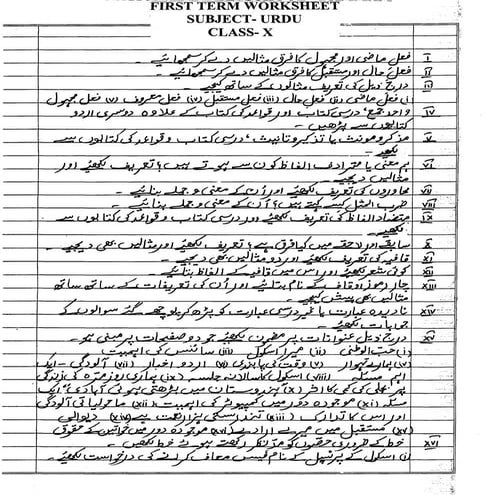 FIRST TERM WORKSHEET
SUBJECT- URDU
CLASS- X
I فعل ماضی اور مجہول کا فرق مثالیں دے کر سمجھائیے ۔
II فعل حال اور مستقبل کا فرق مثالیں دے کر سمجھائیے ۔
III درج ذیل کی تعریف مثالوں کے ساتھ لکھیے ۔
(i) فعل ماضی (ii) فعل حال (iii) فعل مستقبل (iv) فعل معروف (v) فعل مجہول
IV واحد جمع، درسی کتاب اور قواعد کی کتاب کے علاوہ دوسری اردو
کتابوں سے پڑھیں ۔
V مذکر و مونث یا تذکیر و تانیث، درسی کتاب و قواعد کی کتابوں سے
لکھیے ۔
VI ہم معنی یا مترادف الفاظ کون سے ہوتے ہیں؟ تعریف لکھئے اور
مثالیں دیجیے ۔
VII محاوروں کی تعریف لکھئے اور ان کے معنی و جملے بنائیے ۔
VIII ضرب المثل کسے کہتے ہیں؟ ان کے معنی و جملے بنائیے ۔
IX متضاد الفاظ کی تعریف لکھئے اور درسی کتاب و قواعد کی کتابوں سے
X سابقے اور لاحقے میں کیا فرق ہے؟ تعریف لکھئے اور مثالیں بھی دیجیے ۔
XI قافیہ کی تعریف لکھئے اور دو مثالیں بھی دیجیے ۔
XII کوئی شعر لکھئے اور اس میں قافیہ کے الفاظ بتائیے ۔
XIII چار رموز اوقاف کے نام بتائیے اور ان کی تعریفات کے ساتھ ساتھ
مثالیں بھی پیش کیجیے ۔
XIV نادیدہ عبارت یا غیر درسی عبارت کو پڑھ کر پوچھے گئے سوالوں کے
جوابات لکھئے ۔
XV درج ذیل عنوانات پر مضمون لکھیے جو دو صفحات پر مبنی ہو ۔
(i) حب الوطنی (ii) میرا اسکول (iii) سائنس کی اہمیت
(iv) ہمارے تہوار (v) وقت کی پابندی (vi) اردو اخبار (vii) آلودگی ۔ ایک
اہم مسئلہ (viii) اسکول کا سالانہ جلسہ (ix) ہماری روزمرہ کی زندگی
پر کا اثر (x) ہندوستان میں بڑھتی ہوئی آبادی، ایک
مسئلہ (xi) موجودہ دور میں کمپیوٹر کی اہمیت (xii) ماحولیاتی آلودگی
اور اس کا تدارک (xiii) تندرستی ہزار نعمت ہے (xiv) دیوالی
(xv) مستقبل میں میرے ارادے (xvi) موجودہ دور میں خواتین کے حقوق
XVI خط کے ضروری حصوں کو مدنظر رکھتے ہوئے خط لکھیں ۔
(i) اسکول کے پرنسپل کے نام فیس معاف کرانے کی درخواست لکھئے ۔